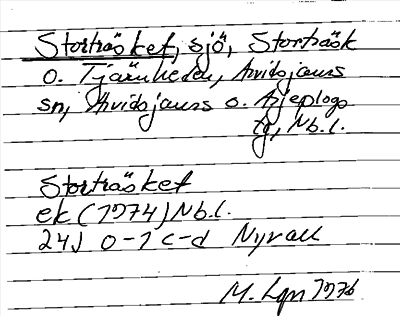 Storträsket, sjö, Storträsk
o. Tjärnheden, Arvidsjaurs
sn, Arvidsjaurs o. Arjeplogs
tg, Nb.l.
Storträsket
ek (1974) Nb.l.
24J 0-1 c-d Nyvall
M. Lgn 1976